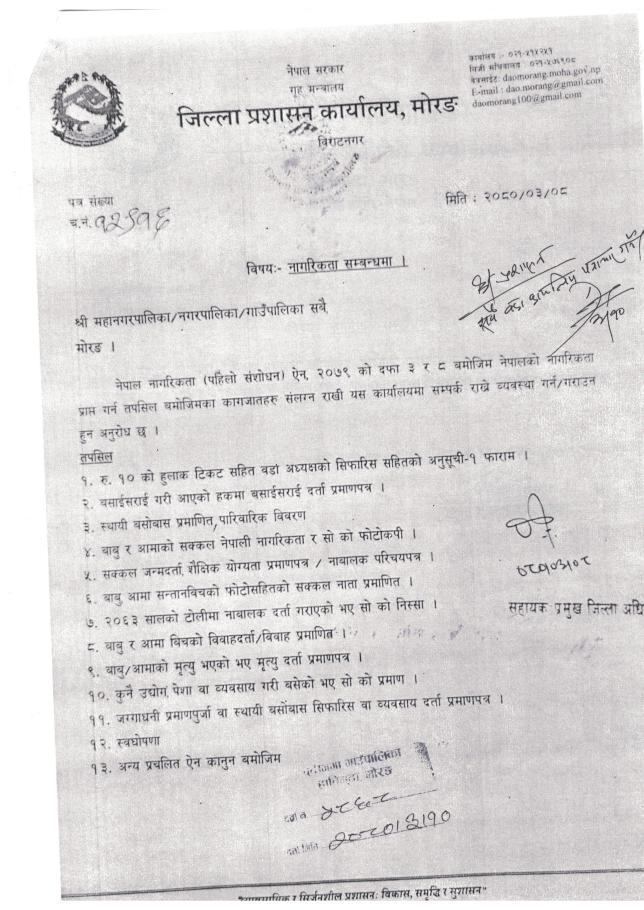 नेपाल सरकार
गृह मन्त्रालय
जिल्ला प्रशासन कार्यालय, मोरङ
विराटनगर
कार्यालय :- ०२१-५१५२५१
निजी सचिवालय : ०२१-५३६१०८
वेवसाईट: daomorang.moha.gov.np
E-mail : dao.morang@gmail.com
daomorang100@gmail.com
पत्र संख्या
च.नं.
मिति : २०८०/०३/०८
विषय:- नागरिकता सम्बन्धमा ।
श्री महानगरपालिका/नगरपालिका/गाउँपालिका सबै,
मोरङ ।
नेपाल नागरिकता (पहिलो संशोधन) ऐन, २०७९ को दफा ३ र ८ बमोजिम नेपालको नागरिकता
प्राप्त गर्न तपसिल बमोजिमका कागजातहरु संलग्न राखी यस कार्यालयमा सम्पर्क राख्ने व्यवस्था गर्न/गराउन
हुन अनुरोध छ ।
तपसिल
१. रु. १० को हुलाक टिकट सहित वडा अध्यक्षको सिफारिस सहितको अनुसूची-१ फाराम ।
२. बसाईसराई गरी आएको हकमा बसाईसराई दर्ता प्रमाणपत्र ।
३. स्थायी बसोबास प्रमाणित, पारिवारिक विवरण
४. बाबु र आमाको सक्कल नेपाली नागरिकता र सो को फोटोकपी ।
५. सक्कल जन्मदर्ता, शैक्षिक योग्यता प्रमाणपत्र / नाबालक परिचयपत्र ।
६. बाबु आमा सन्तानबिचको फोटोसहितको सक्कल नाता प्रमाणित ।
७. २०६३ सालको टोलीमा नाबालक दर्ता गराएको भए सो को निस्सा ।
८. बाबु र आमा बिचको विवाहदर्ता/विवाह प्रमाणित ।
९. बाबु/आमाको मृत्यु भएको भए मृत्यु दर्ता प्रमाणपत्र ।
१०. कुनै उद्योग, पेशा वा व्यवसाय गरी बसेको भए सो को प्रमाण ।
११. जग्गाधनी प्रमाणपुर्जा वा स्थायी बसोंबास सिफारिस वा व्यवसाय दर्ता प्रमाणपत्र ।
१२. स्वघोषणा
१३. अन्य प्रचलित ऐन कानुन बमोजिम
सहायक प्रमुख जिल्ला अधि
गाउँपालिका
मोरङ
विकास, समृद्धि र सुशासन"